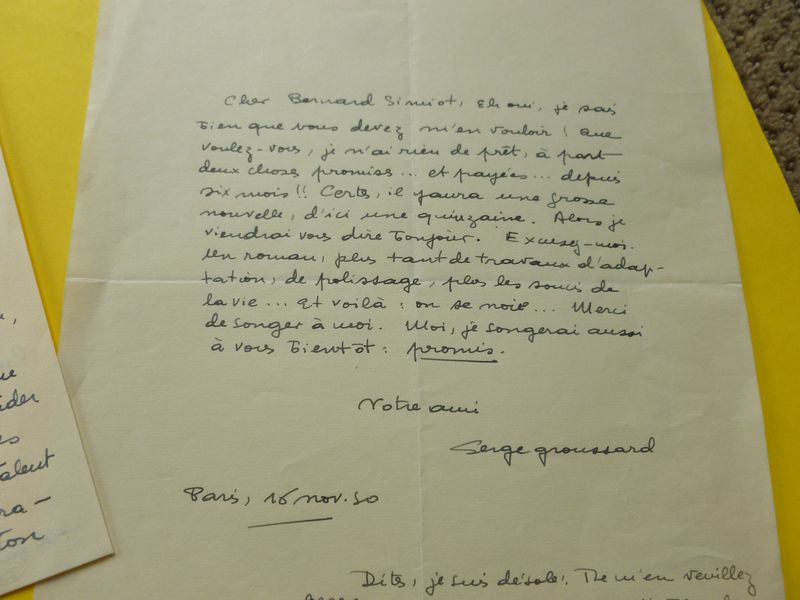 Cher Bernard Simiot, Eh oui, je sais
bien que vous devez m'en vouloir ! Que
voulez-vous, je n'ai rien de prêt, à part
deux choses promises... et payées... depuis
six mois !! Certes, il y aura une grosse
nouvelle, d'ici une quinzaine. Alors je
viendrai vous dire bonjour. Excusez-moi.
Un roman, plus tant de travaux d'adap-
tation, de polissage, plus les soucis de
la vie... Et voilà : on se noie... Merci
de songer à moi. Moi, je songerai aussi
à vous bientôt : promis.
Votre ami
Serge Groussard
Paris, 16 nov. 50
Dites, je suis désolé. Ne m'en veuillez
ue
ider
talent
ra-
ton